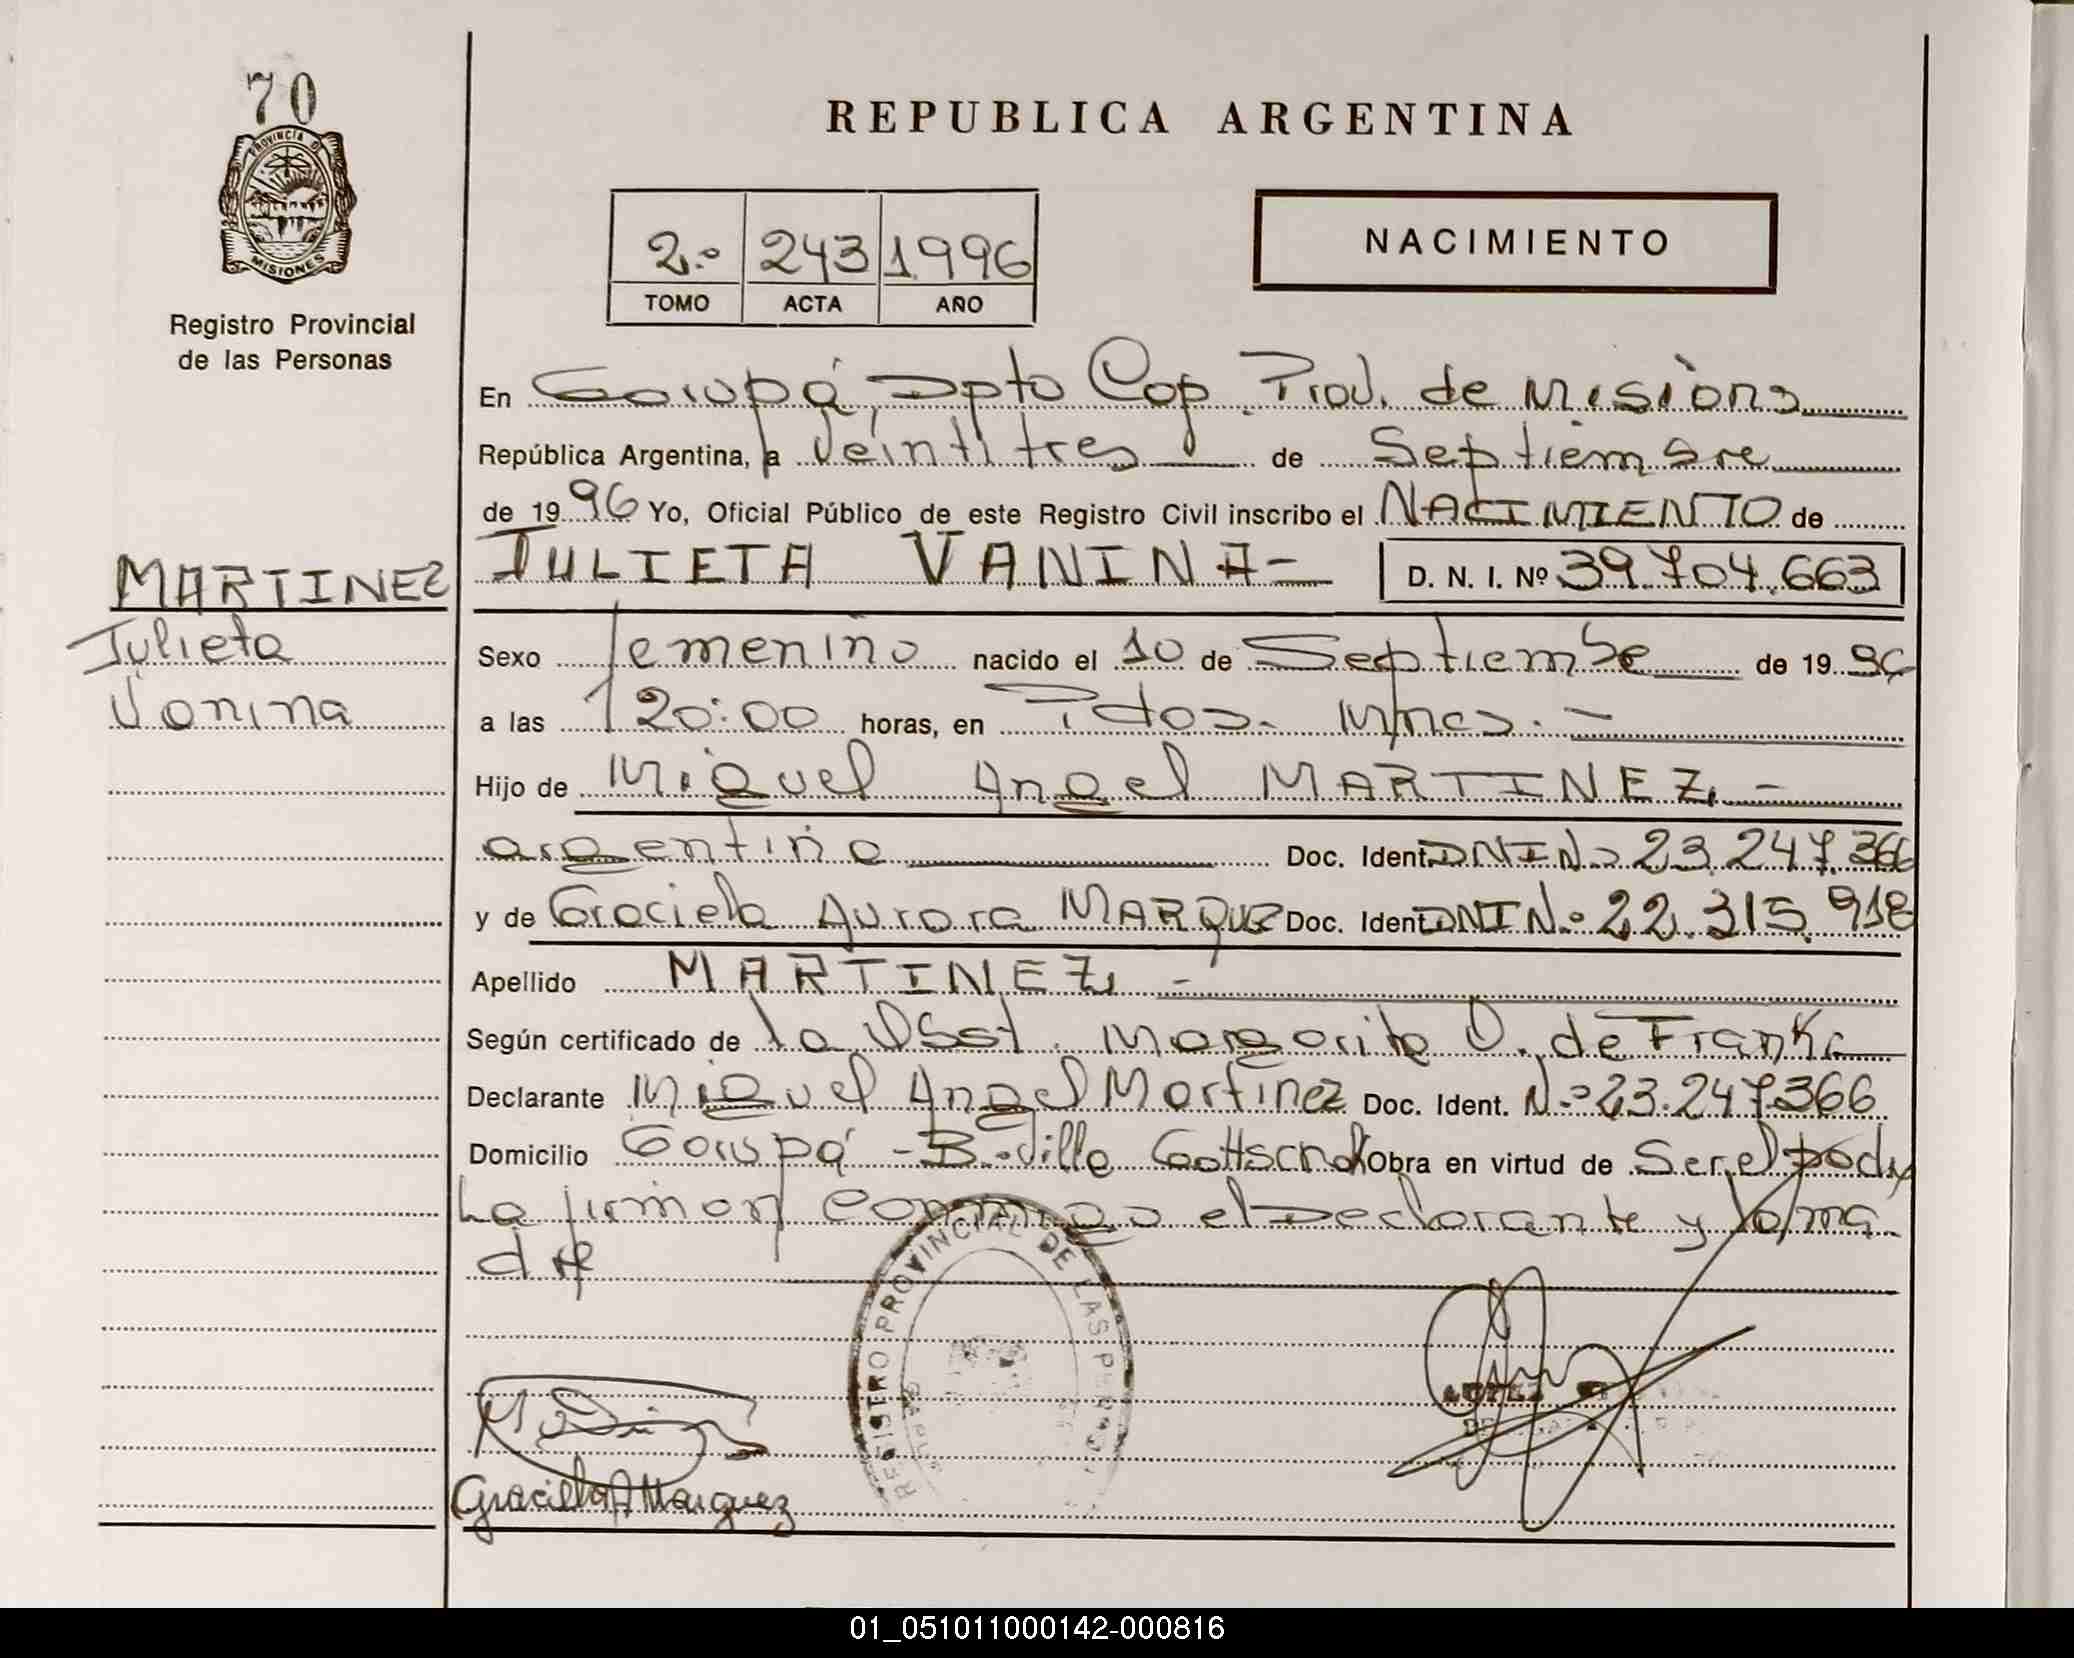 70
PROVINCIA D
MISIONES
Registro Provincial
de las Personas
REPUBLICA ARGENTINA
2.º 243 1996
TOMO ACTA AÑO
NACIMIENTO
En Garupá, Dpto Cap. Prov. de Misions
República Argentina, a veintitres de Septiembre
de 1996 Yo, Oficial Público de este Registro Civil inscribo el NACIMIENTO de
JULIETA VANINA- D. N. I. Nº 39.704.663
MARTINEZ
Julieta
Vanina
Sexo femenino nacido el 10 de Septiembre de 1996
a las 20:00 horas, en Pdas. Mnes. -
Hijo de Miguel Angel MARTINEZ, -
argentino Doc. Ident. DNI Nº 23.247.366
y de Graciela Aurora MARQUEZ Doc. Ident. DNI Nº 22.315.918
Apellido MARTINEZ, -
Según certificado de la Obst. Margarita O. de Franke
Declarante Miguel Angel Martinez Doc. Ident. Nº 23.247.366
Domicilio Garupá - B. Villa Obra en virtud de Ser el padre
La firman conmigo el Declarante y la ma
dre
REGISTRO PROVINCIAL DE LAS PER
Graciela A Marquez
01_051011000142-000816